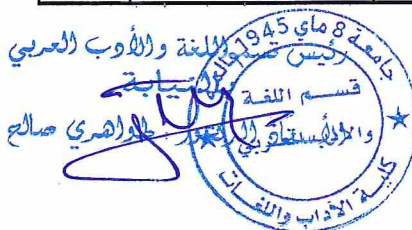 رئيس قسم اللغة والأدب العربي
بالنيابة
الأستاذ الدكتور: طواهري صالح
جامعة 8 ماي 1945
قسم اللغة
والأدب العربي
كلية الآداب واللغات